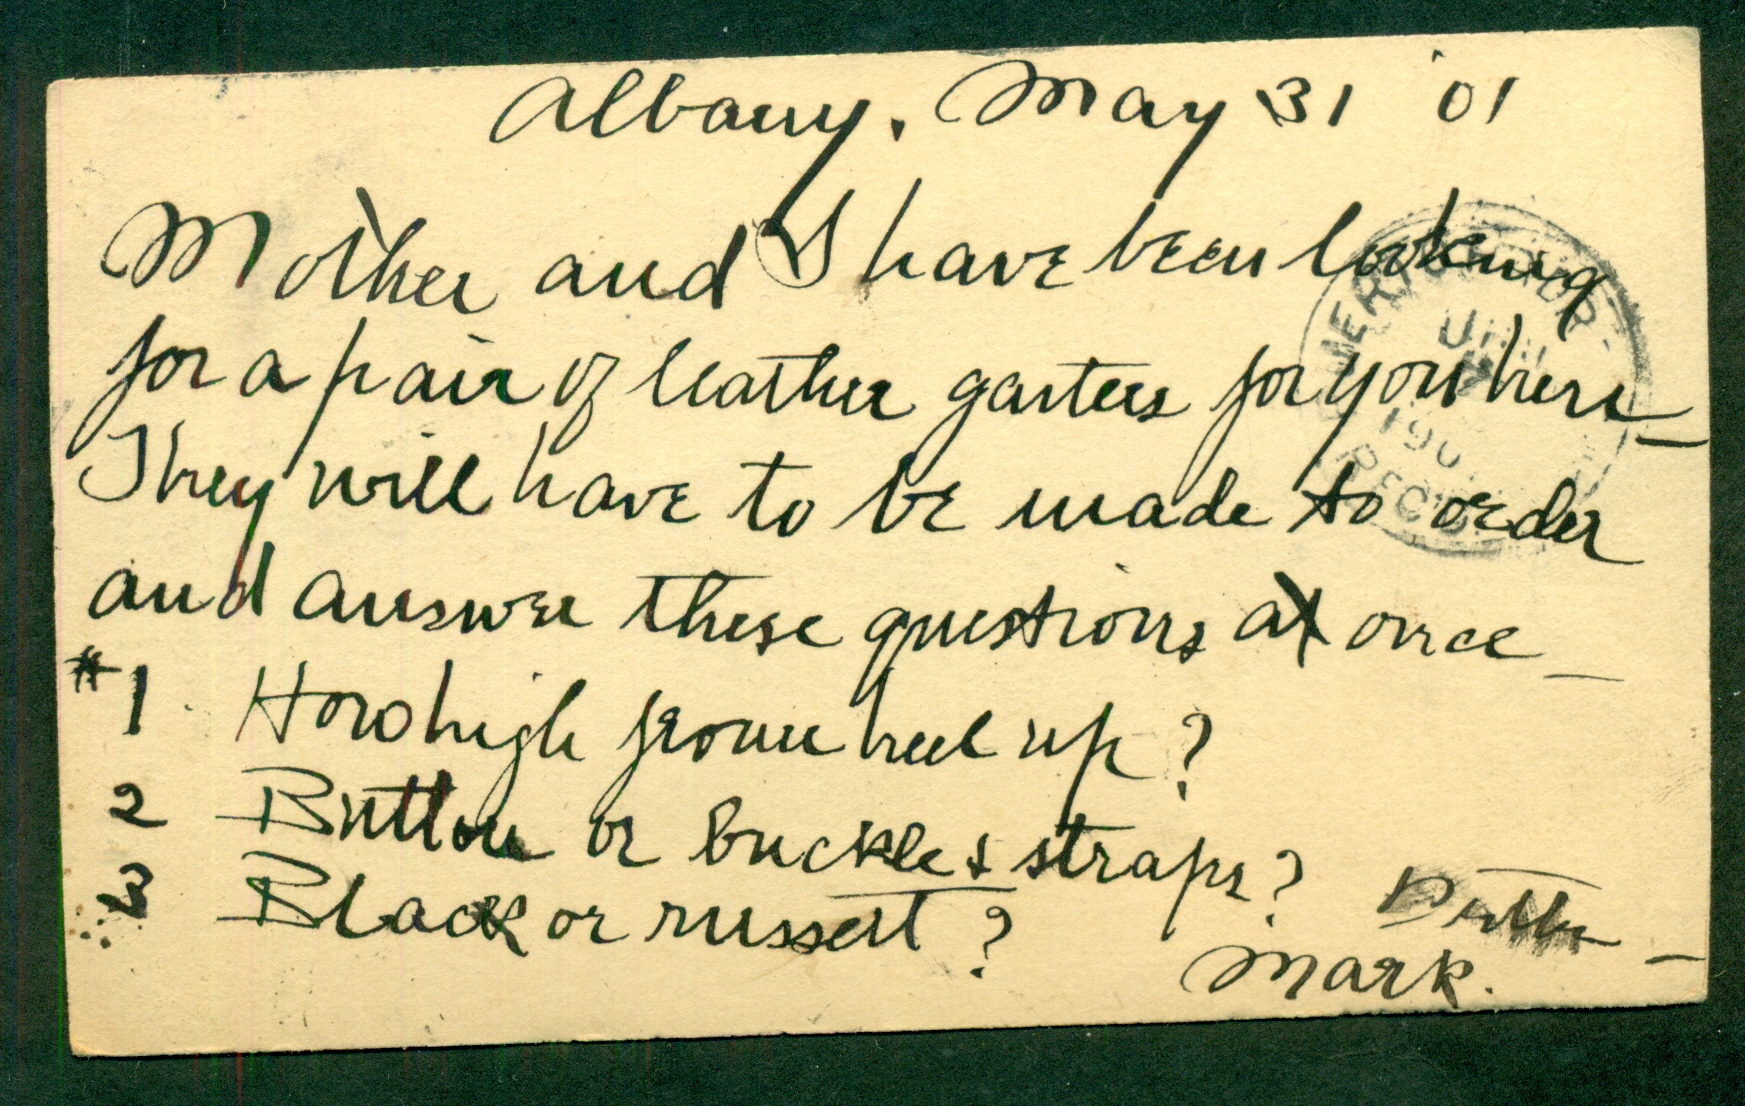 Albany. May 31 '01
Mother and I have been looking
for a pair of leather garters for you here_
They will have to be made to order
and answer these questions at once_
#1 How high from heel up?
2 Button or buckle & straps?
3 Black or russett?
Mark.
190
REC'D